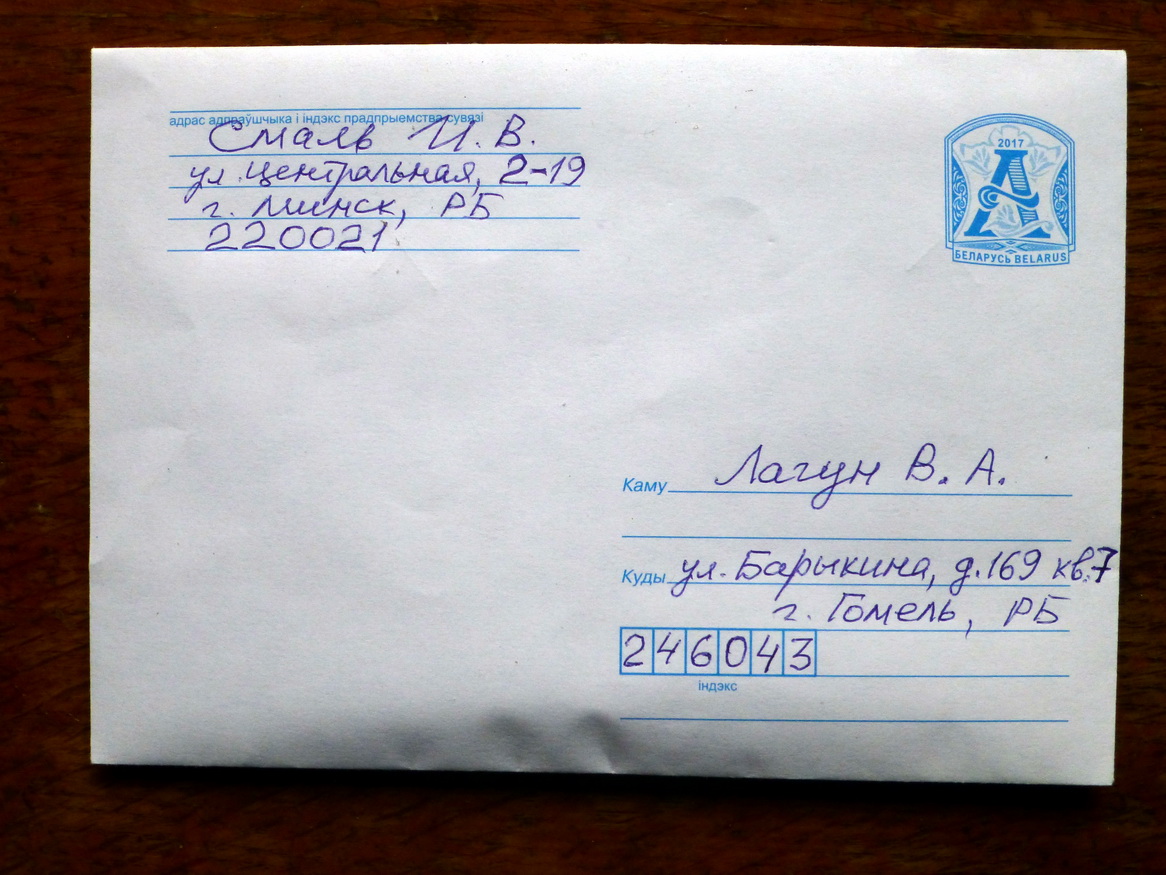 адрас адпраўшчыка і індэкс прадпрыемства сувязі
Смаль И. В.
ул. Центральная, 2-19
г. Минск, РБ
220021
2017
А
БЕЛАРУСЬ BELARUS
Каму Лагун В. А.
Куды ул. Барыкина, д.169 кв.7
г. Гомель, РБ
246043
індэкс